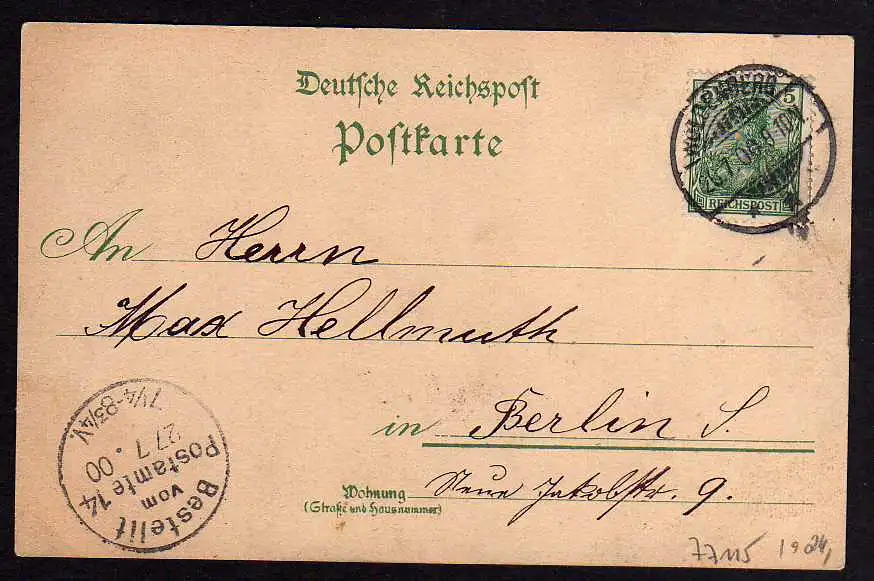 Deutsche Reichspost
Postkarte
5
REICHSPOST
An Herrn
Max Hellmuth
in Berlin S.
Wohnung Neue Jakobstr. 9.
(Straße und Hausnummer)
Bestellt
vom
Postamte 14
27.7.00
7¼-8¾V
77115